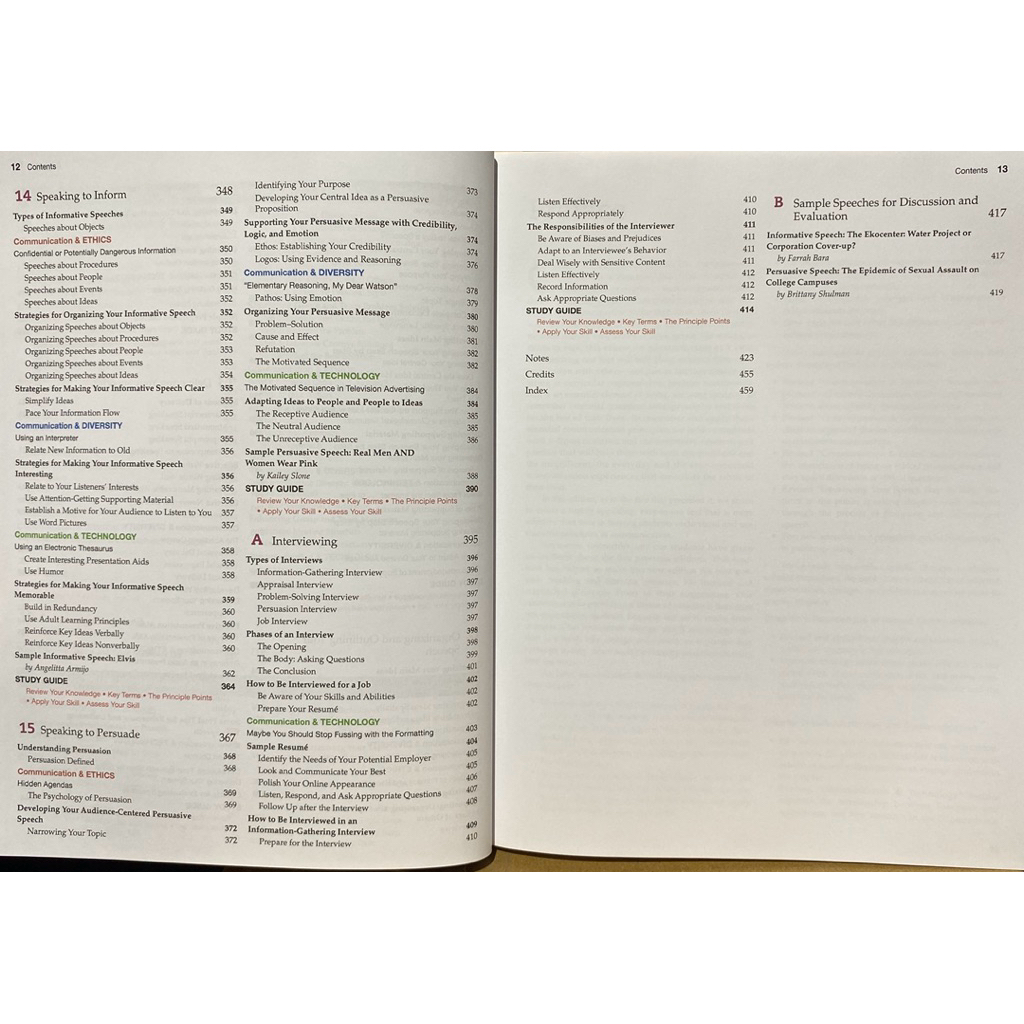 12 Contents
14 Speaking to Inform 348
Types of Informative Speeches 349
Speeches about Objects 349
Communication & ETHICS
Confidential or Potentially Dangerous Information 350
Speeches about Procedures 350
Speeches about People 351
Speeches about Events 351
Speeches about Ideas 352
Strategies for Organizing Your Informative Speech 352
Organizing Speeches about Objects 352
Organizing Speeches about Procedures 352
Organizing Speeches about People 353
Organizing Speeches about Events 353
Organizing Speeches about Ideas 354
Strategies for Making Your Informative Speech Clear 355
Simplify Ideas 355
Pace Your Information Flow 355
Communication & DIVERSITY
Using an Interpreter 355
Relate New Information to Old 356
Strategies for Making Your Informative Speech
Interesting 356
Relate to Your Listeners' Interests 356
Use Attention-Getting Supporting Material 356
Establish a Motive for Your Audience to Listen to You 357
Use Word Pictures 357
Communication & TECHNOLOGY
Using an Electronic Thesaurus 358
Create Interesting Presentation Aids 358
Use Humor 358
Strategies for Making Your Informative Speech
Memorable 359
Build in Redundancy 360
Use Adult Learning Principles 360
Reinforce Key Ideas Verbally 360
Reinforce Key Ideas Nonverbally 360
Sample Informative Speech: Elvis
by Angelitta Armijo 362
STUDY GUIDE 364
Review Your Knowledge • Key Terms • The Principle Points
• Apply Your Skill • Assess Your Skill
15 Speaking to Persuade 367
Understanding Persuasion 368
Persuasion Defined 368
Communication & ETHICS
Hidden Agendas 369
The Psychology of Persuasion 369
Developing Your Audience-Centered Persuasive
Speech 372
Narrowing Your Topic 372
Identifying Your Purpose 373
Developing Your Central Idea as a Persuasive
Proposition 374
Supporting Your Persuasive Message with Credibility,
Logic, and Emotion 374
Ethos: Establishing Your Credibility 374
Logos: Using Evidence and Reasoning 376
Communication & DIVERSITY
"Elementary Reasoning, My Dear Watson" 378
Pathos: Using Emotion 379
Organizing Your Persuasive Message 380
Problem–Solution 380
Cause and Effect 381
Refutation 382
The Motivated Sequence 382
Communication & TECHNOLOGY
The Motivated Sequence in Television Advertising 384
Adapting Ideas to People and People to Ideas 384
The Receptive Audience 385
The Neutral Audience 385
The Unreceptive Audience 386
Sample Persuasive Speech: Real Men AND
Women Wear Pink
by Kailey Slone 388
STUDY GUIDE 390
Review Your Knowledge • Key Terms • The Principle Points
• Apply Your Skill • Assess Your Skill
A Interviewing 395
Types of Interviews 396
Information-Gathering Interview 396
Appraisal Interview 397
Problem-Solving Interview 397
Persuasion Interview 397
Job Interview 397
Phases of an Interview 398
The Opening 398
The Body: Asking Questions 399
The Conclusion 401
How to Be Interviewed for a Job 402
Be Aware of Your Skills and Abilities 402
Prepare Your Resumé 402
Communication & TECHNOLOGY
Maybe You Should Stop Fussing with the Formatting 403
Sample Resumé 404
Identify the Needs of Your Potential Employer 405
Look and Communicate Your Best 405
Polish Your Online Appearance 406
Listen, Respond, and Ask Appropriate Questions 407
Follow Up after the Interview 408
How to Be Interviewed in an
Information-Gathering Interview 409
Prepare for the Interview 410
Contents 13
Listen Effectively 410
Respond Appropriately 410
The Responsibilities of the Interviewer 411
Be Aware of Biases and Prejudices 411
Adapt to an Interviewee's Behavior 411
Deal Wisely with Sensitive Content 411
Listen Effectively 412
Record Information 412
Ask Appropriate Questions 412
STUDY GUIDE 414
Review Your Knowledge • Key Terms • The Principle Points
• Apply Your Skill • Assess Your Skill
Notes 423
Credits 455
Index 459
B Sample Speeches for Discussion and
Evaluation 417
Informative Speech: The Ekocenter: Water Project or
Corporation Cover-up?
by Farrah Bara 417
Persuasive Speech: The Epidemic of Sexual Assault on
College Campuses
by Brittany Shulman 419